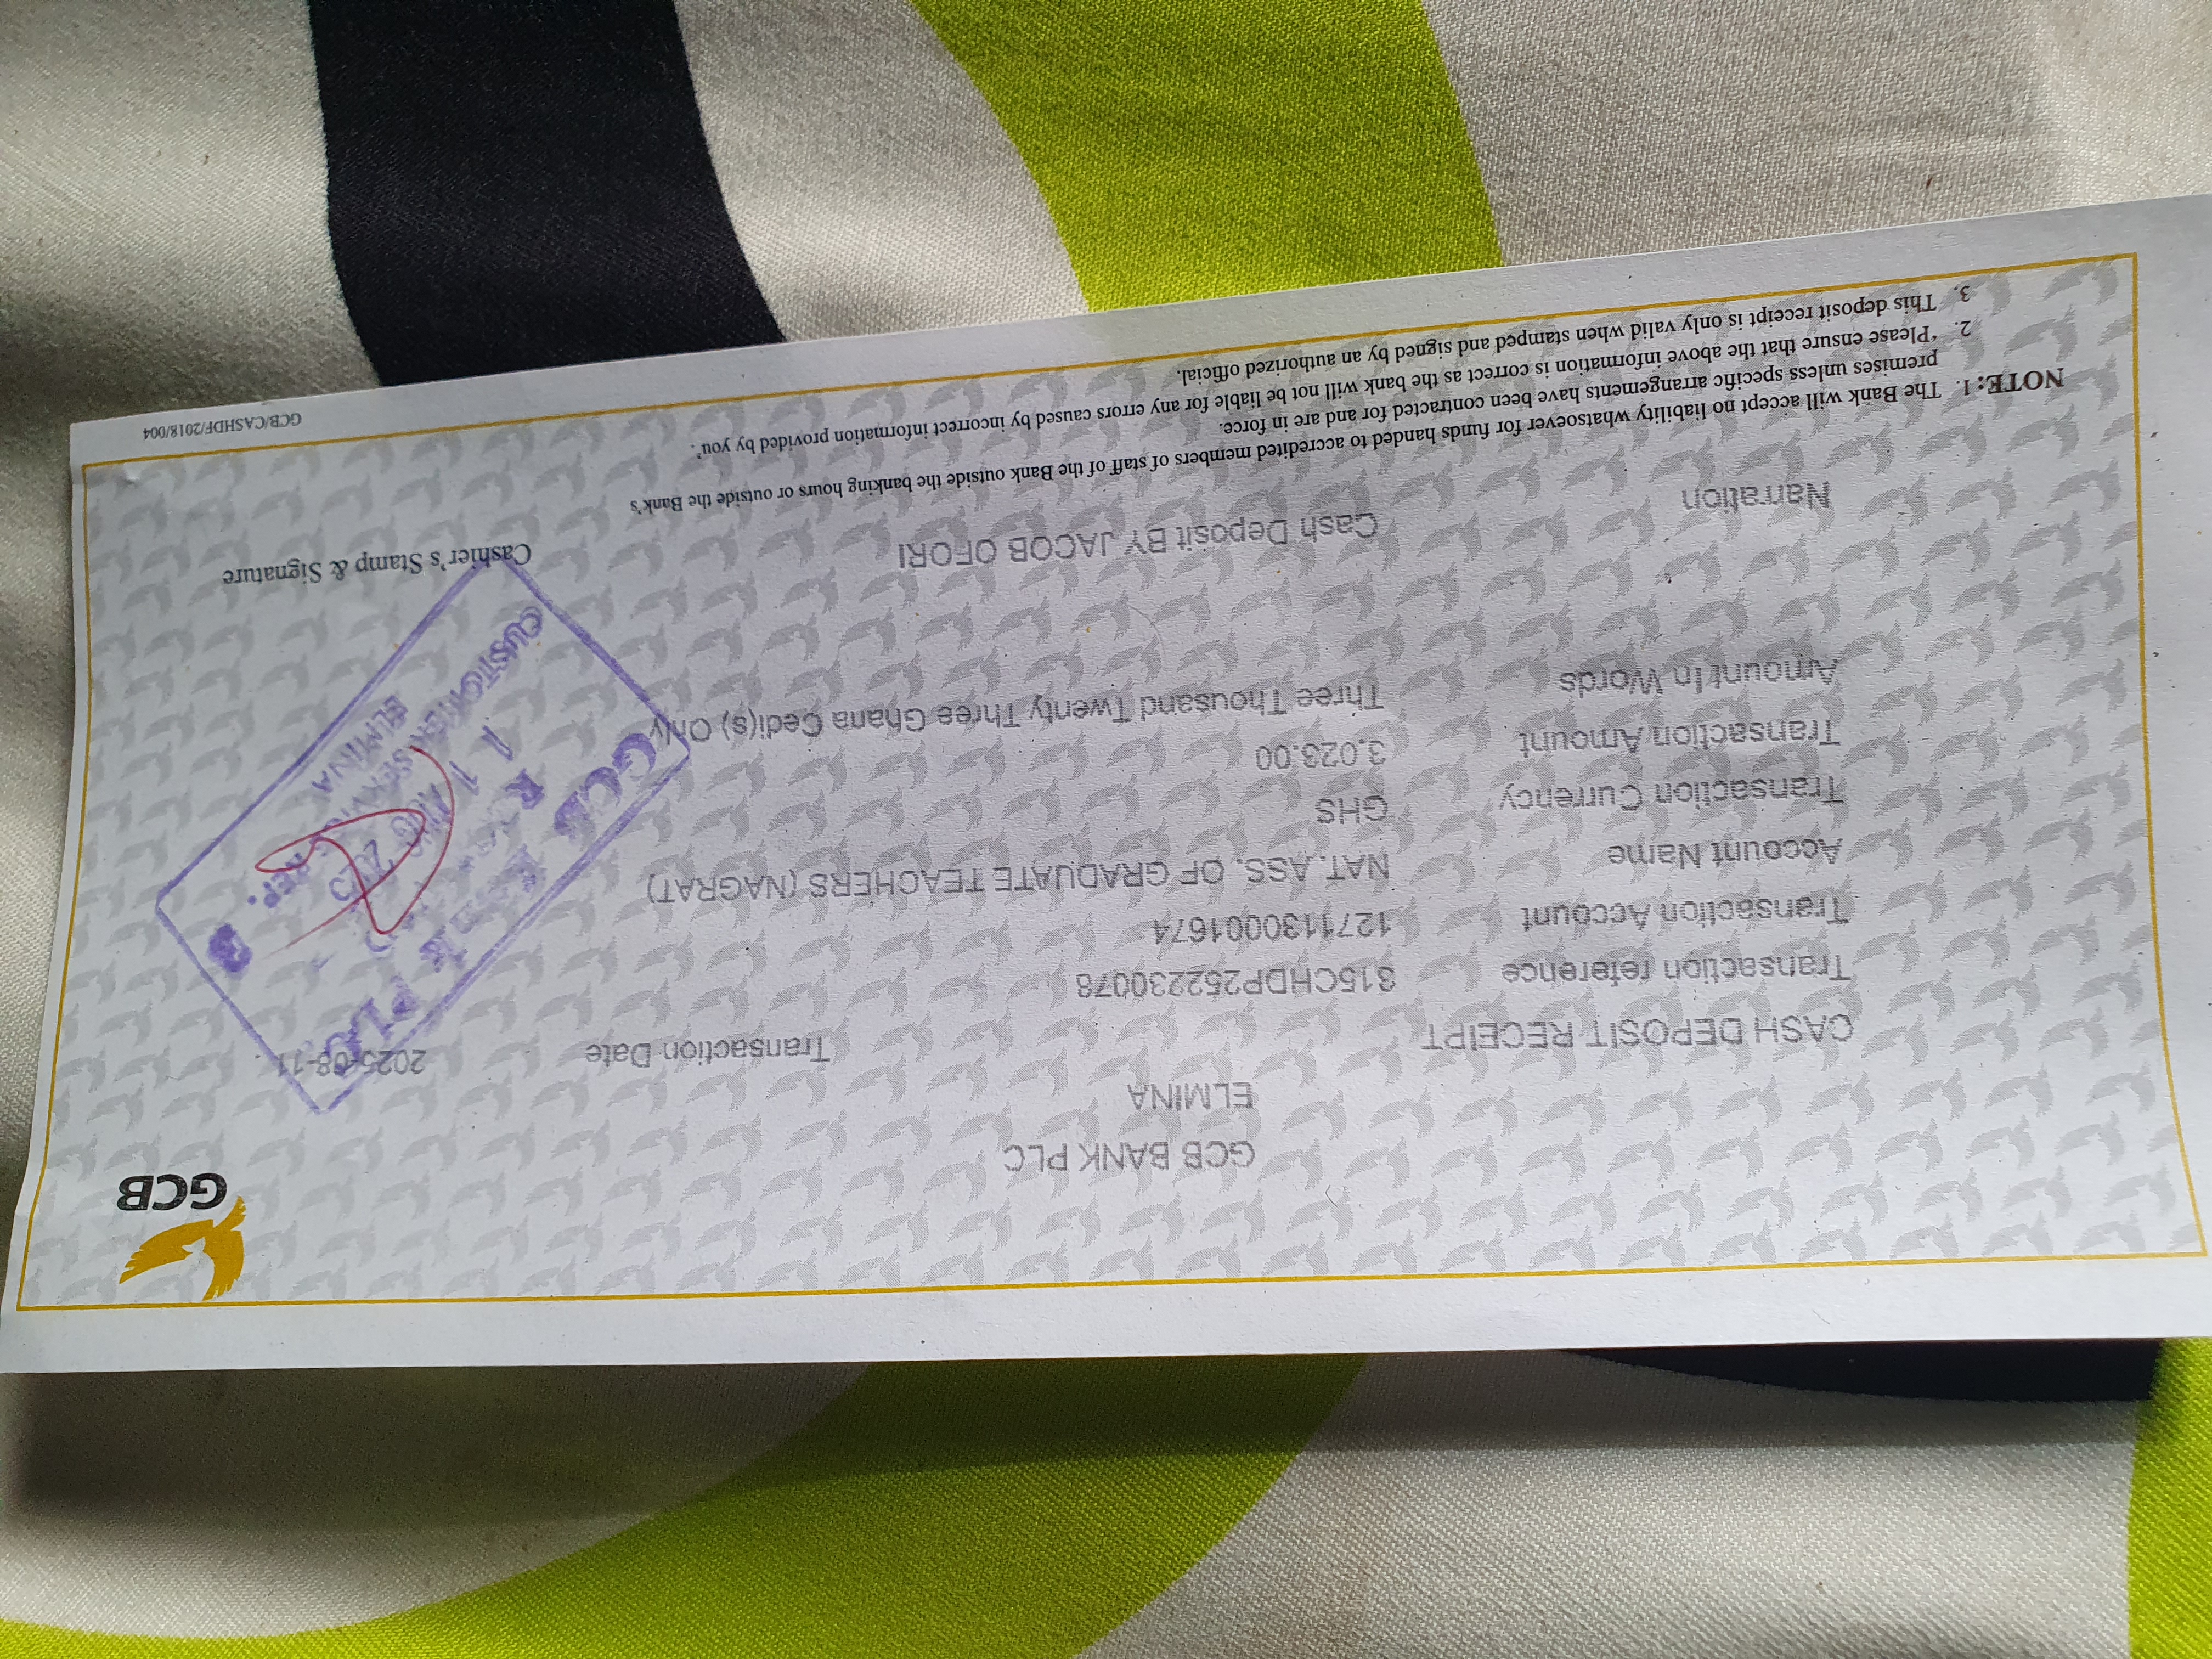 GCB
GCB BANK PLC
ELMINA
CASH DEPOSIT RECEIPT
Transaction Date 2025-08-11
Transaction reference S15CHDP252230078
Transaction Account 1271130001674
Account Name NAT. ASS. OF GRADUATE TEACHERS (NAGRAT)
Transaction Currency GHS
Transaction Amount 3,023.00
Amount In Words Three Thousand Twenty Three Ghana Cedi(s) Only
Narration Cash Deposit BY JACOB OFORI
GCB PLC
AUG 2025
CUSTOMER SERVICE REP.
ELMINA
Cashier's Stamp & Signature
NOTE: 1. The Bank will accept no liability whatsoever for funds handed to accredited members of staff of the Bank outside the banking hours or outside the Bank's
premises unless specific arrangements have been contracted for and are in force.
2. 'Please ensure that the above information is correct as the bank will not be liable for any errors caused by incorrect information provided by you'.
3. This deposit receipt is only valid when stamped and signed by an authorized official.
GCB/CASHDF/2018/004